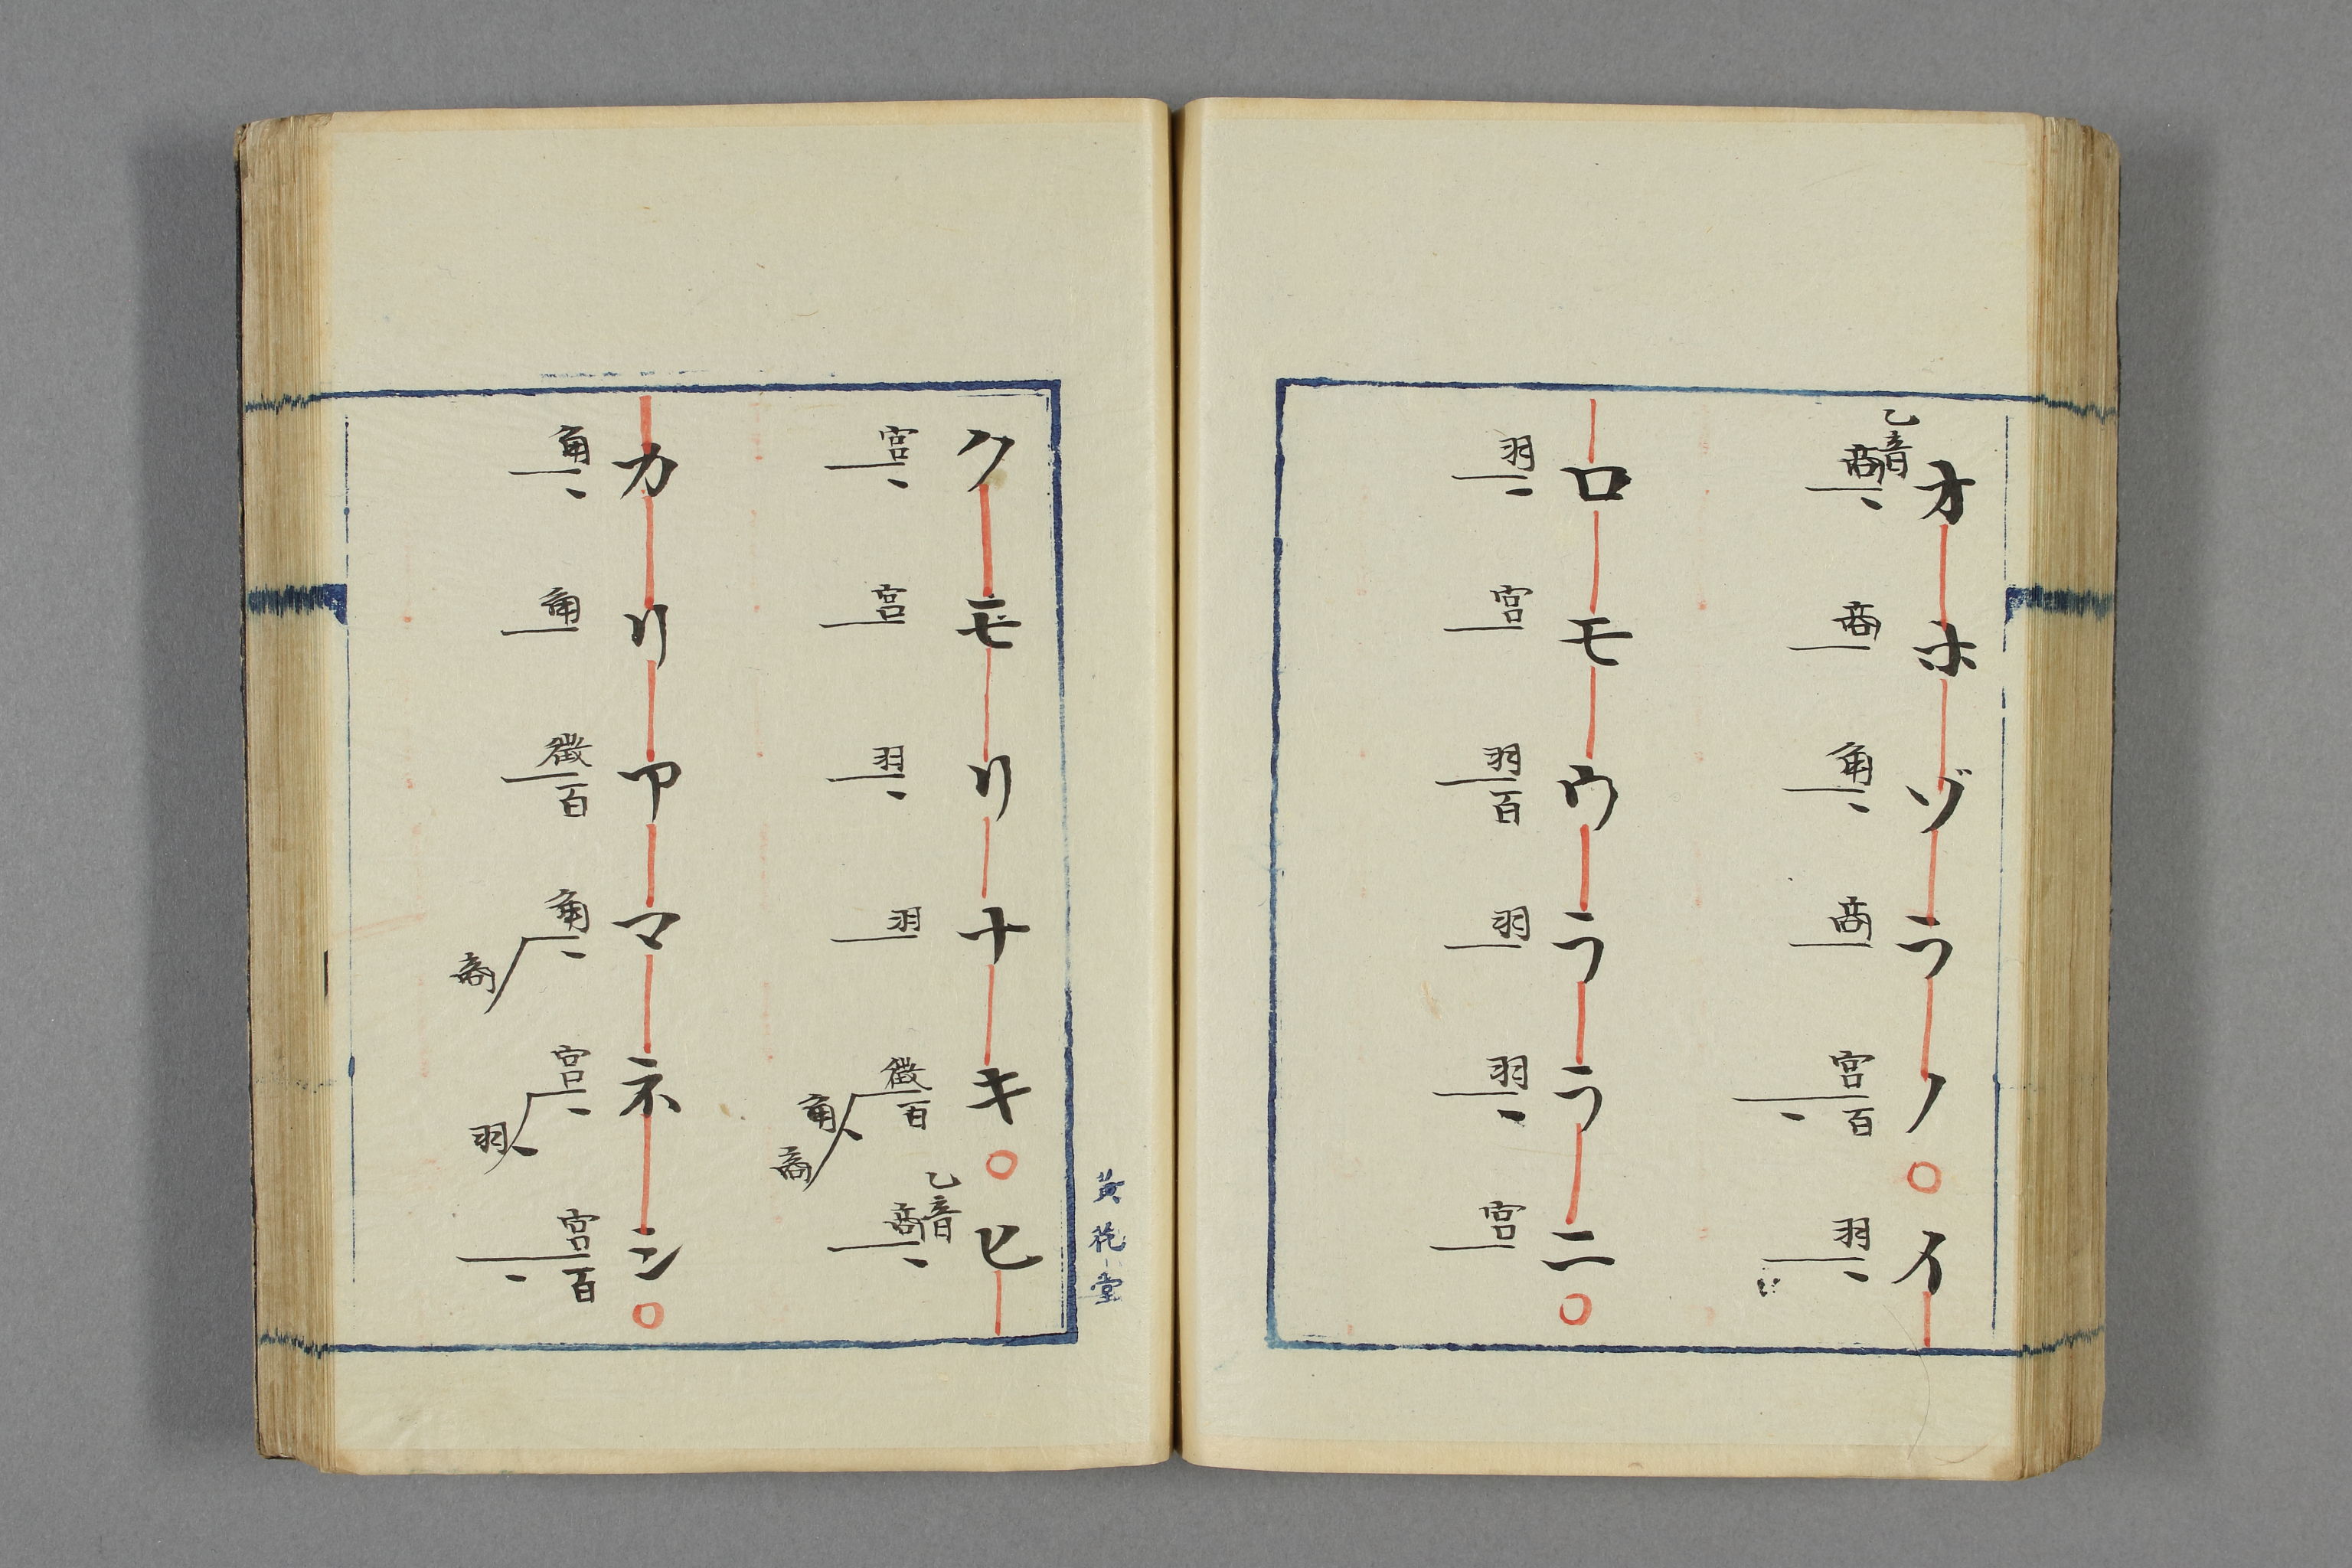 オホゾラノ○イ
乙音
商商角商宮百羽
ロモウララニ○
羽宮羽百羽羽宮
クモリナキ○ヒ
宮宮羽羽徴百角商乙音商
カリアマネシ○
角角徴百角商宮羽宮百
黄花堂